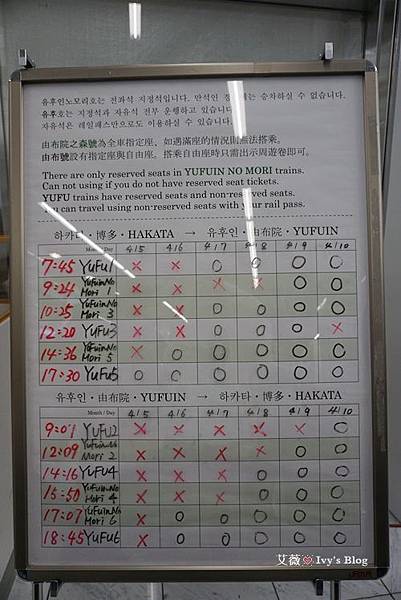 유후인노모리호는 전좌석 지정석입니다. 만석인 경 는 승차하실 수 없습니다.
유후호는 지정석과 자유석 전부 운행하고 있습니
자유석은 레일패스만으로도 이용하실 수 있습니다.
由布院之森號為全車指定座、如遇滿座的情況則無法搭乘。
由布號設有指定座與自由座。搭乘自由座時只需出示周遊卷即可。
There are only reserved seats in YUFUIN NO MORI trains.
Can not using if you do not have reserved seat tickets.
YUFU trains have reserved seats and non-reserved seats.
You can travel using non-reserved seats with your rail pass.
하카타・博多・HAKATA → 유후인・由布院・YUFUIN
Month / Day 4/5 4/6 4/7 4/8 4/9 4/10
7:45 YuFu1 × × ○ ○ ○ ○
9:24 YuFuin No Mori 1 × × × × ○ ○
10:25 YuFuin No Mori 3 × × ○ ○ ○ ○
12:20 YuFu3 × × ○ ○ ○ ×
14:36 YuFuin No Mori 5 × ○ ○ ○ ○ ○
17:30 YuFu5 ○ ○ ○ ○ ○ ○
유후인・由布院・YUFUIN → 하카타・博多・HAKATA
Month / Day 4/5 4/6 4/7 4/8 4/9 4/10
9:01 YuFu2 × × × × × ○
12:09 YuFuin No Mori 2 × × × × ○ ○
14:16 YuFu4 × × × ○ ○ ○
15:50 YuFuin No Mori 4 × × × ○ ○ ○
17:07 YuFuin No Mori 6 × ○ ○ ○ ○ ○
18:45 YuFu6 × ○ ○ ○ ○ ○
艾薇 Ivy's Blog